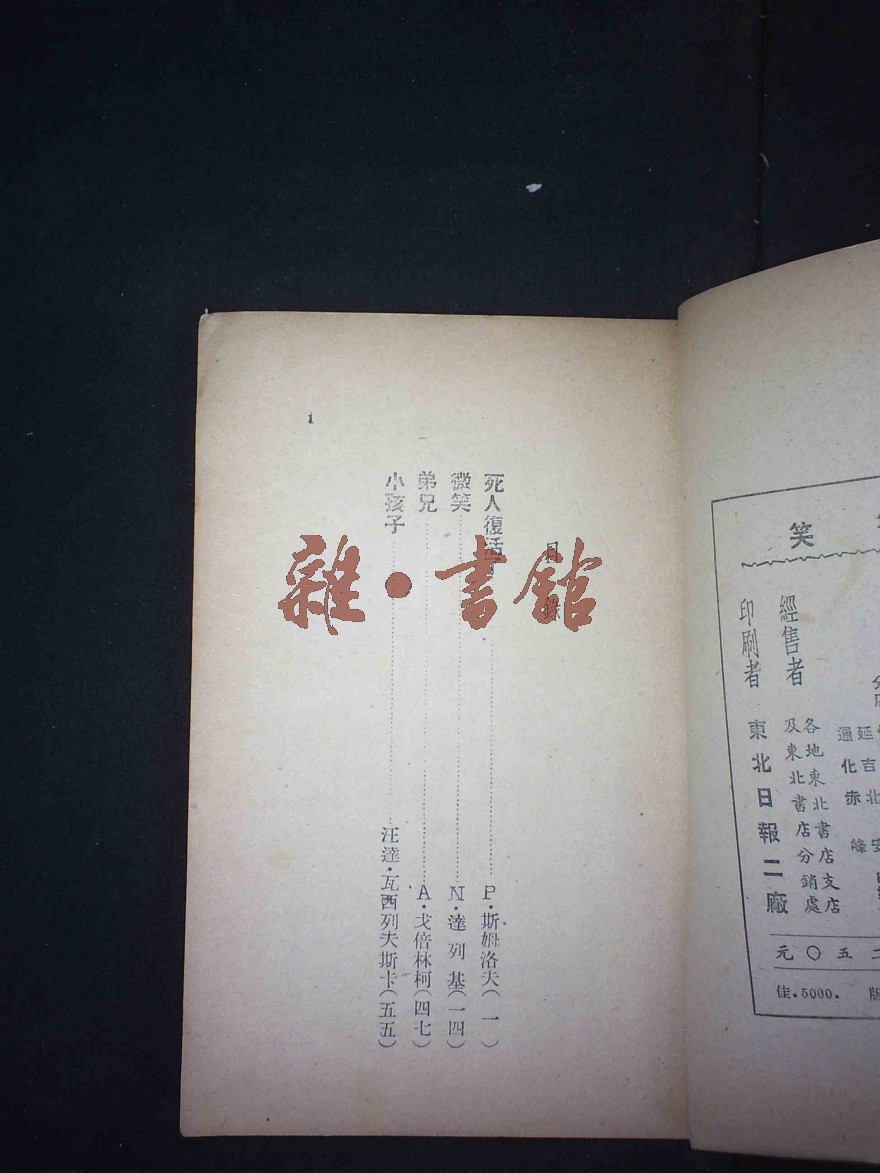 笑
經售者
各地東北書店支店
及東北書店分銷處
印刷者
東北日報二廠
五〇元
版
佳.5000.
目錄
死人復活了
P·斯姆洛夫(一)
微笑
N·達列基(一四)
弟兄
A·戈倍林柯(四七)
小孩子
汪達·瓦西列夫斯卡(五五)
雜·書館